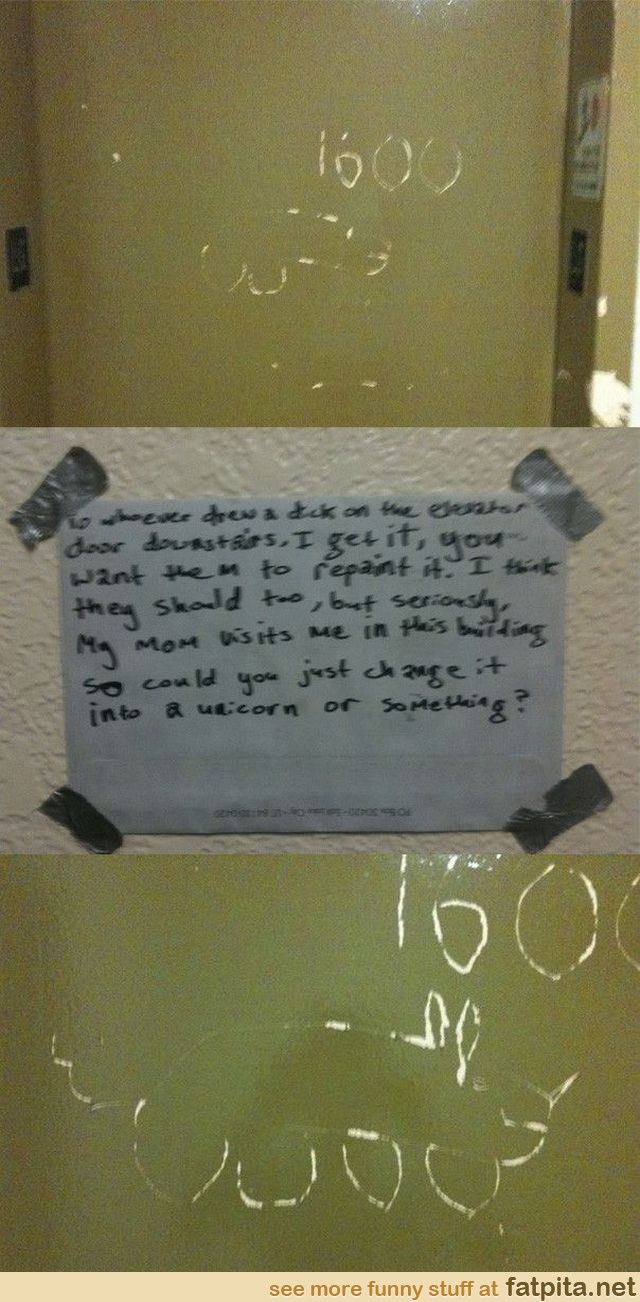 1600
To whoever drew a dick on the elevator
door downstairs. I get it, you
want them to repaint it. I think
they should too, but seriously,
My MOM visits me in this building
so could you just change it
into a unicorn or something?
1600
see more funny stuff at fatpita.net